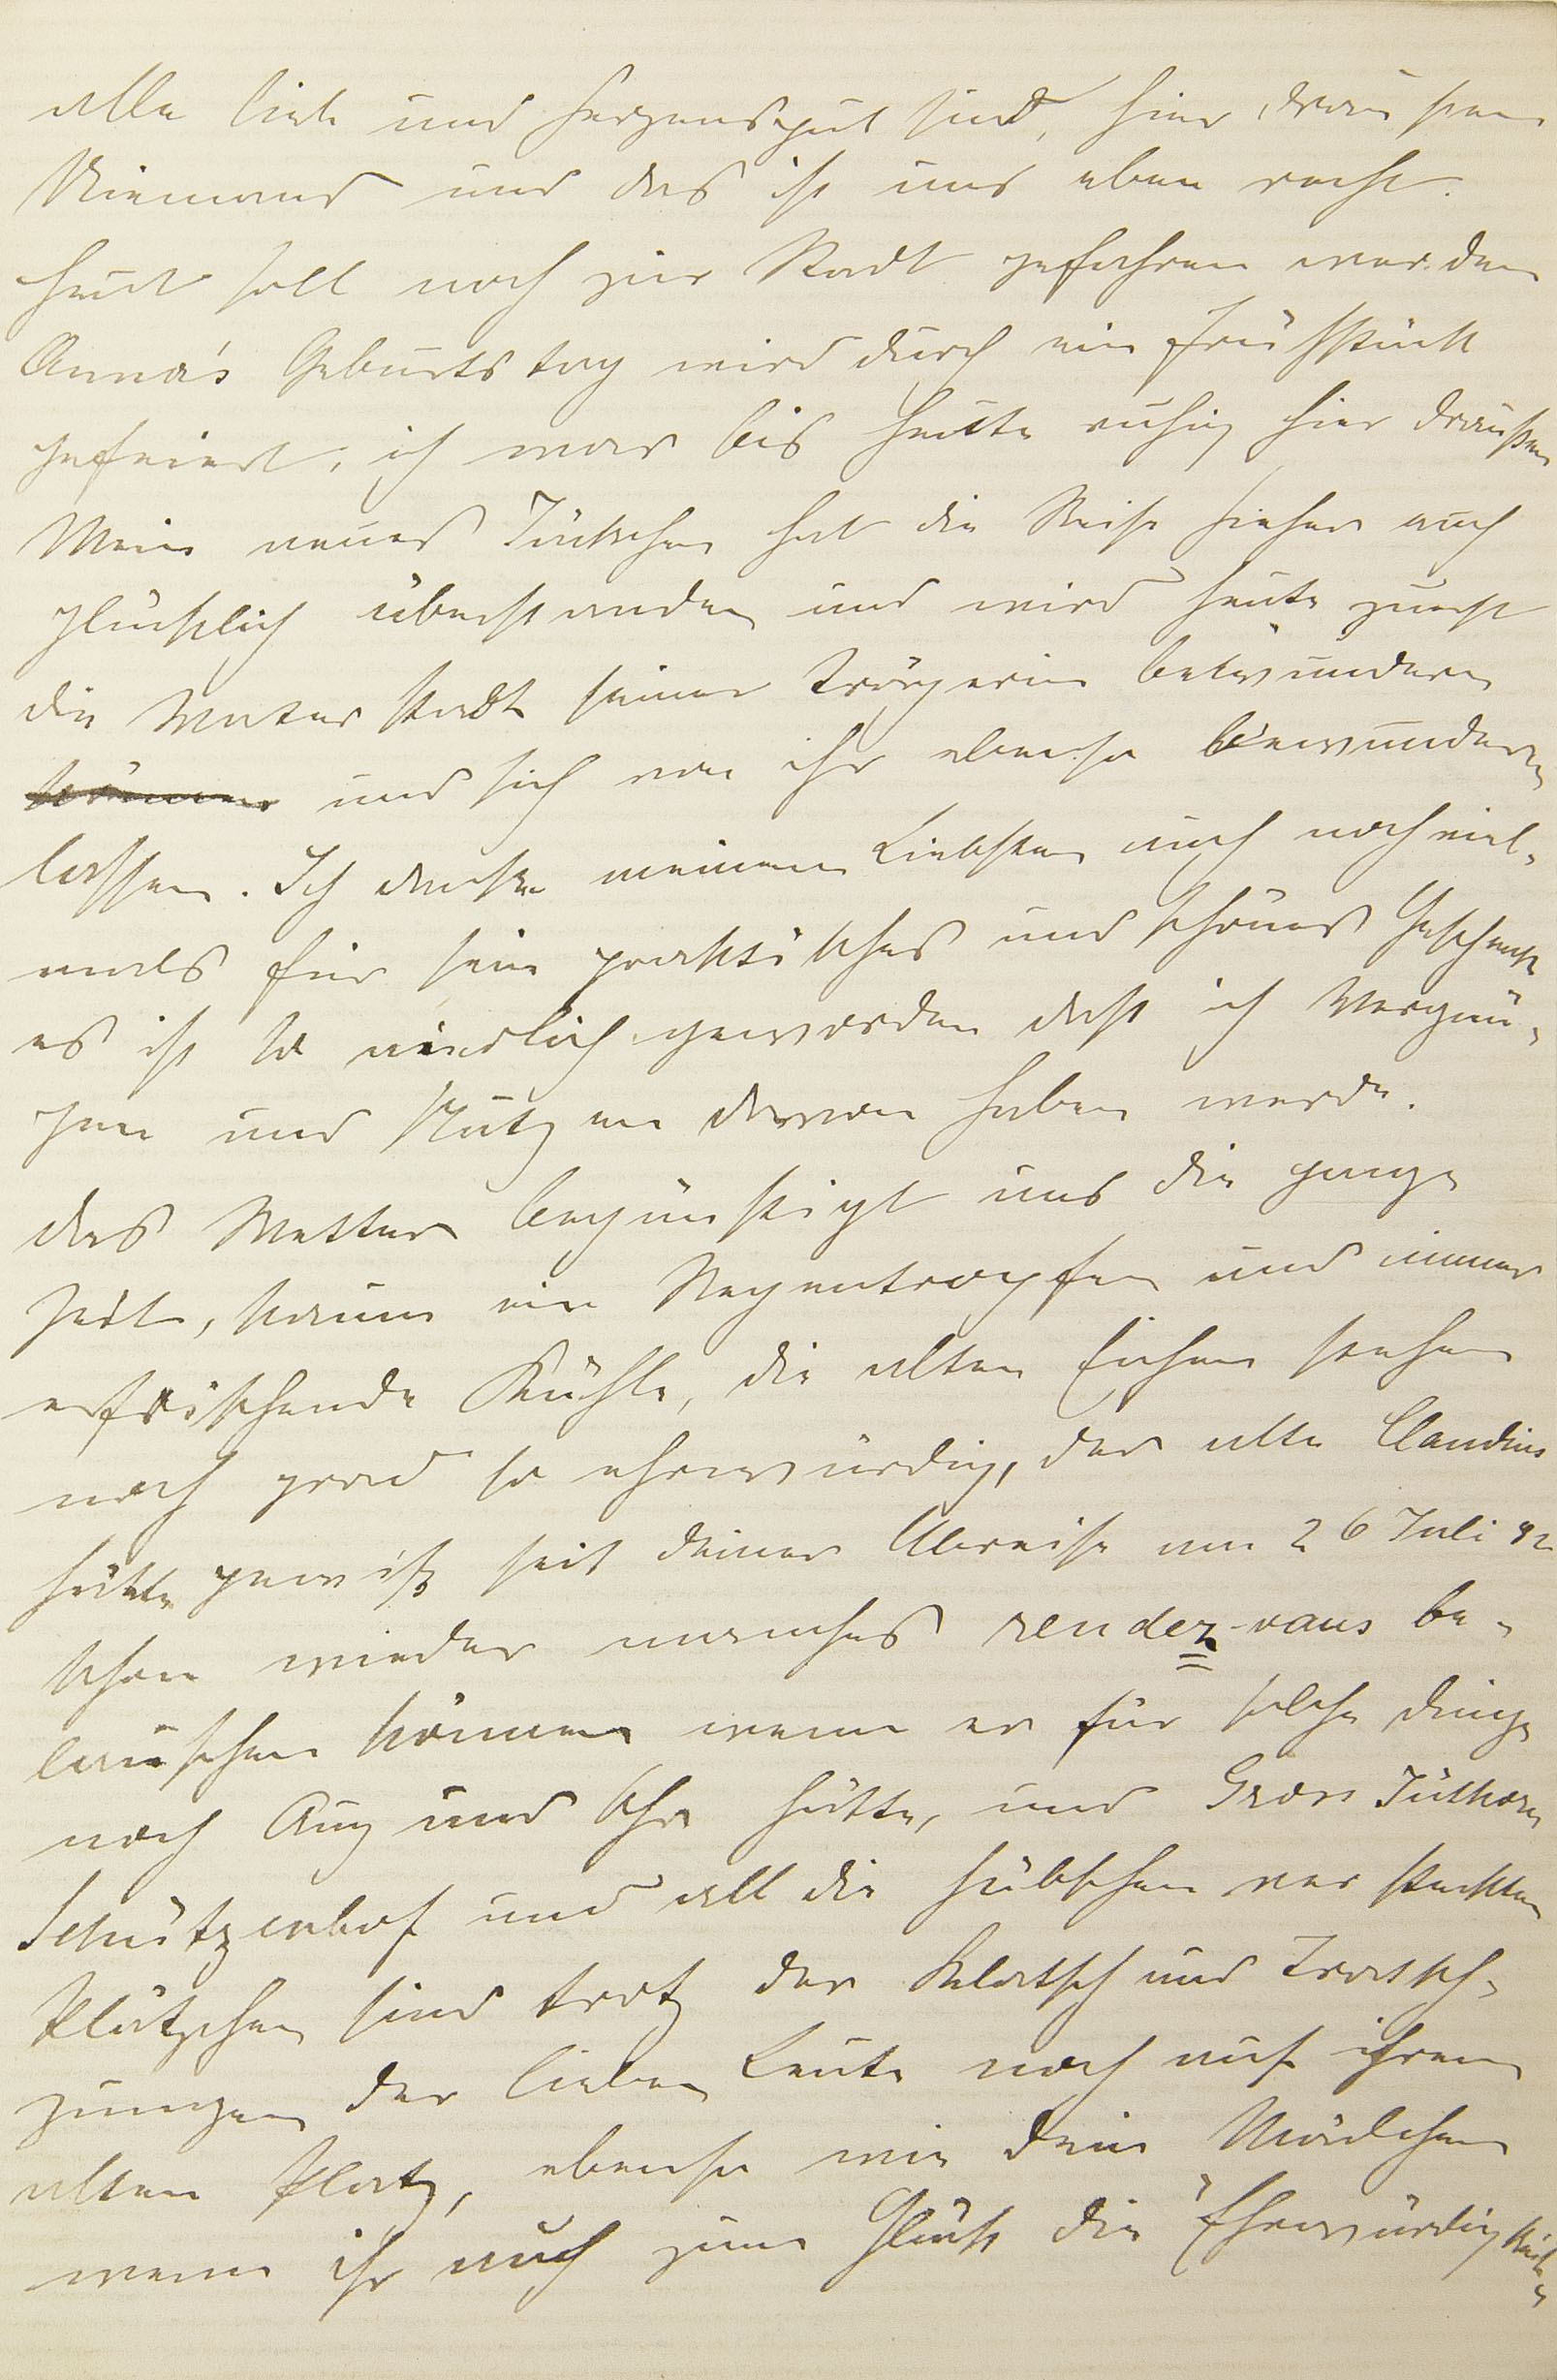 alle lieb und herzensgut sind, hier draußen
Niemand und das ist uns eben recht.
Heut soll noch zur Stadt gefahren werden
Anna's Geburtstag wird durch ein Frühstück
gefeiert, ich war bis heute ruhig hier draußen
Mein neues Jäckchen hat die Reise hieher auch
glücklich überstanden und wird heute zuerst
die Vaterstadt seiner Trägerin bewundern
und sich von ihr ebenso bewundern
lassen. Ich danke meinem Liebsten auch noch viel-
mals für sein praktisches und schönes Geschenk
es ist so niedlich geworden daß ich Vergnü-
gen und Nutzen davon haben werde.
das Wetter begünstigt uns die ganze
Zeit, kaum ein Regentropfen und immer
erfrischende Kühle, die alten Eichen stehen
noch grad so ehrwürdig, der alte Claudius
hätte gewiß seit deiner Abreise am 26 Juli 92
schon wieder manches rendez-vous be-
lauschen können wenn er für solche Dinge
noch Aug und Ohr hätte, und Gross Jüthorn
Schützenhof und all die hübschen versteckten
Plätzchen sind trotz der Klatsch und Tratsch-
zungen der lieben Leute noch auf ihrem
alten Platz, ebenso wie dein Mädchen
wenn ihr auch zum Glück die Ehrwürdigkeit